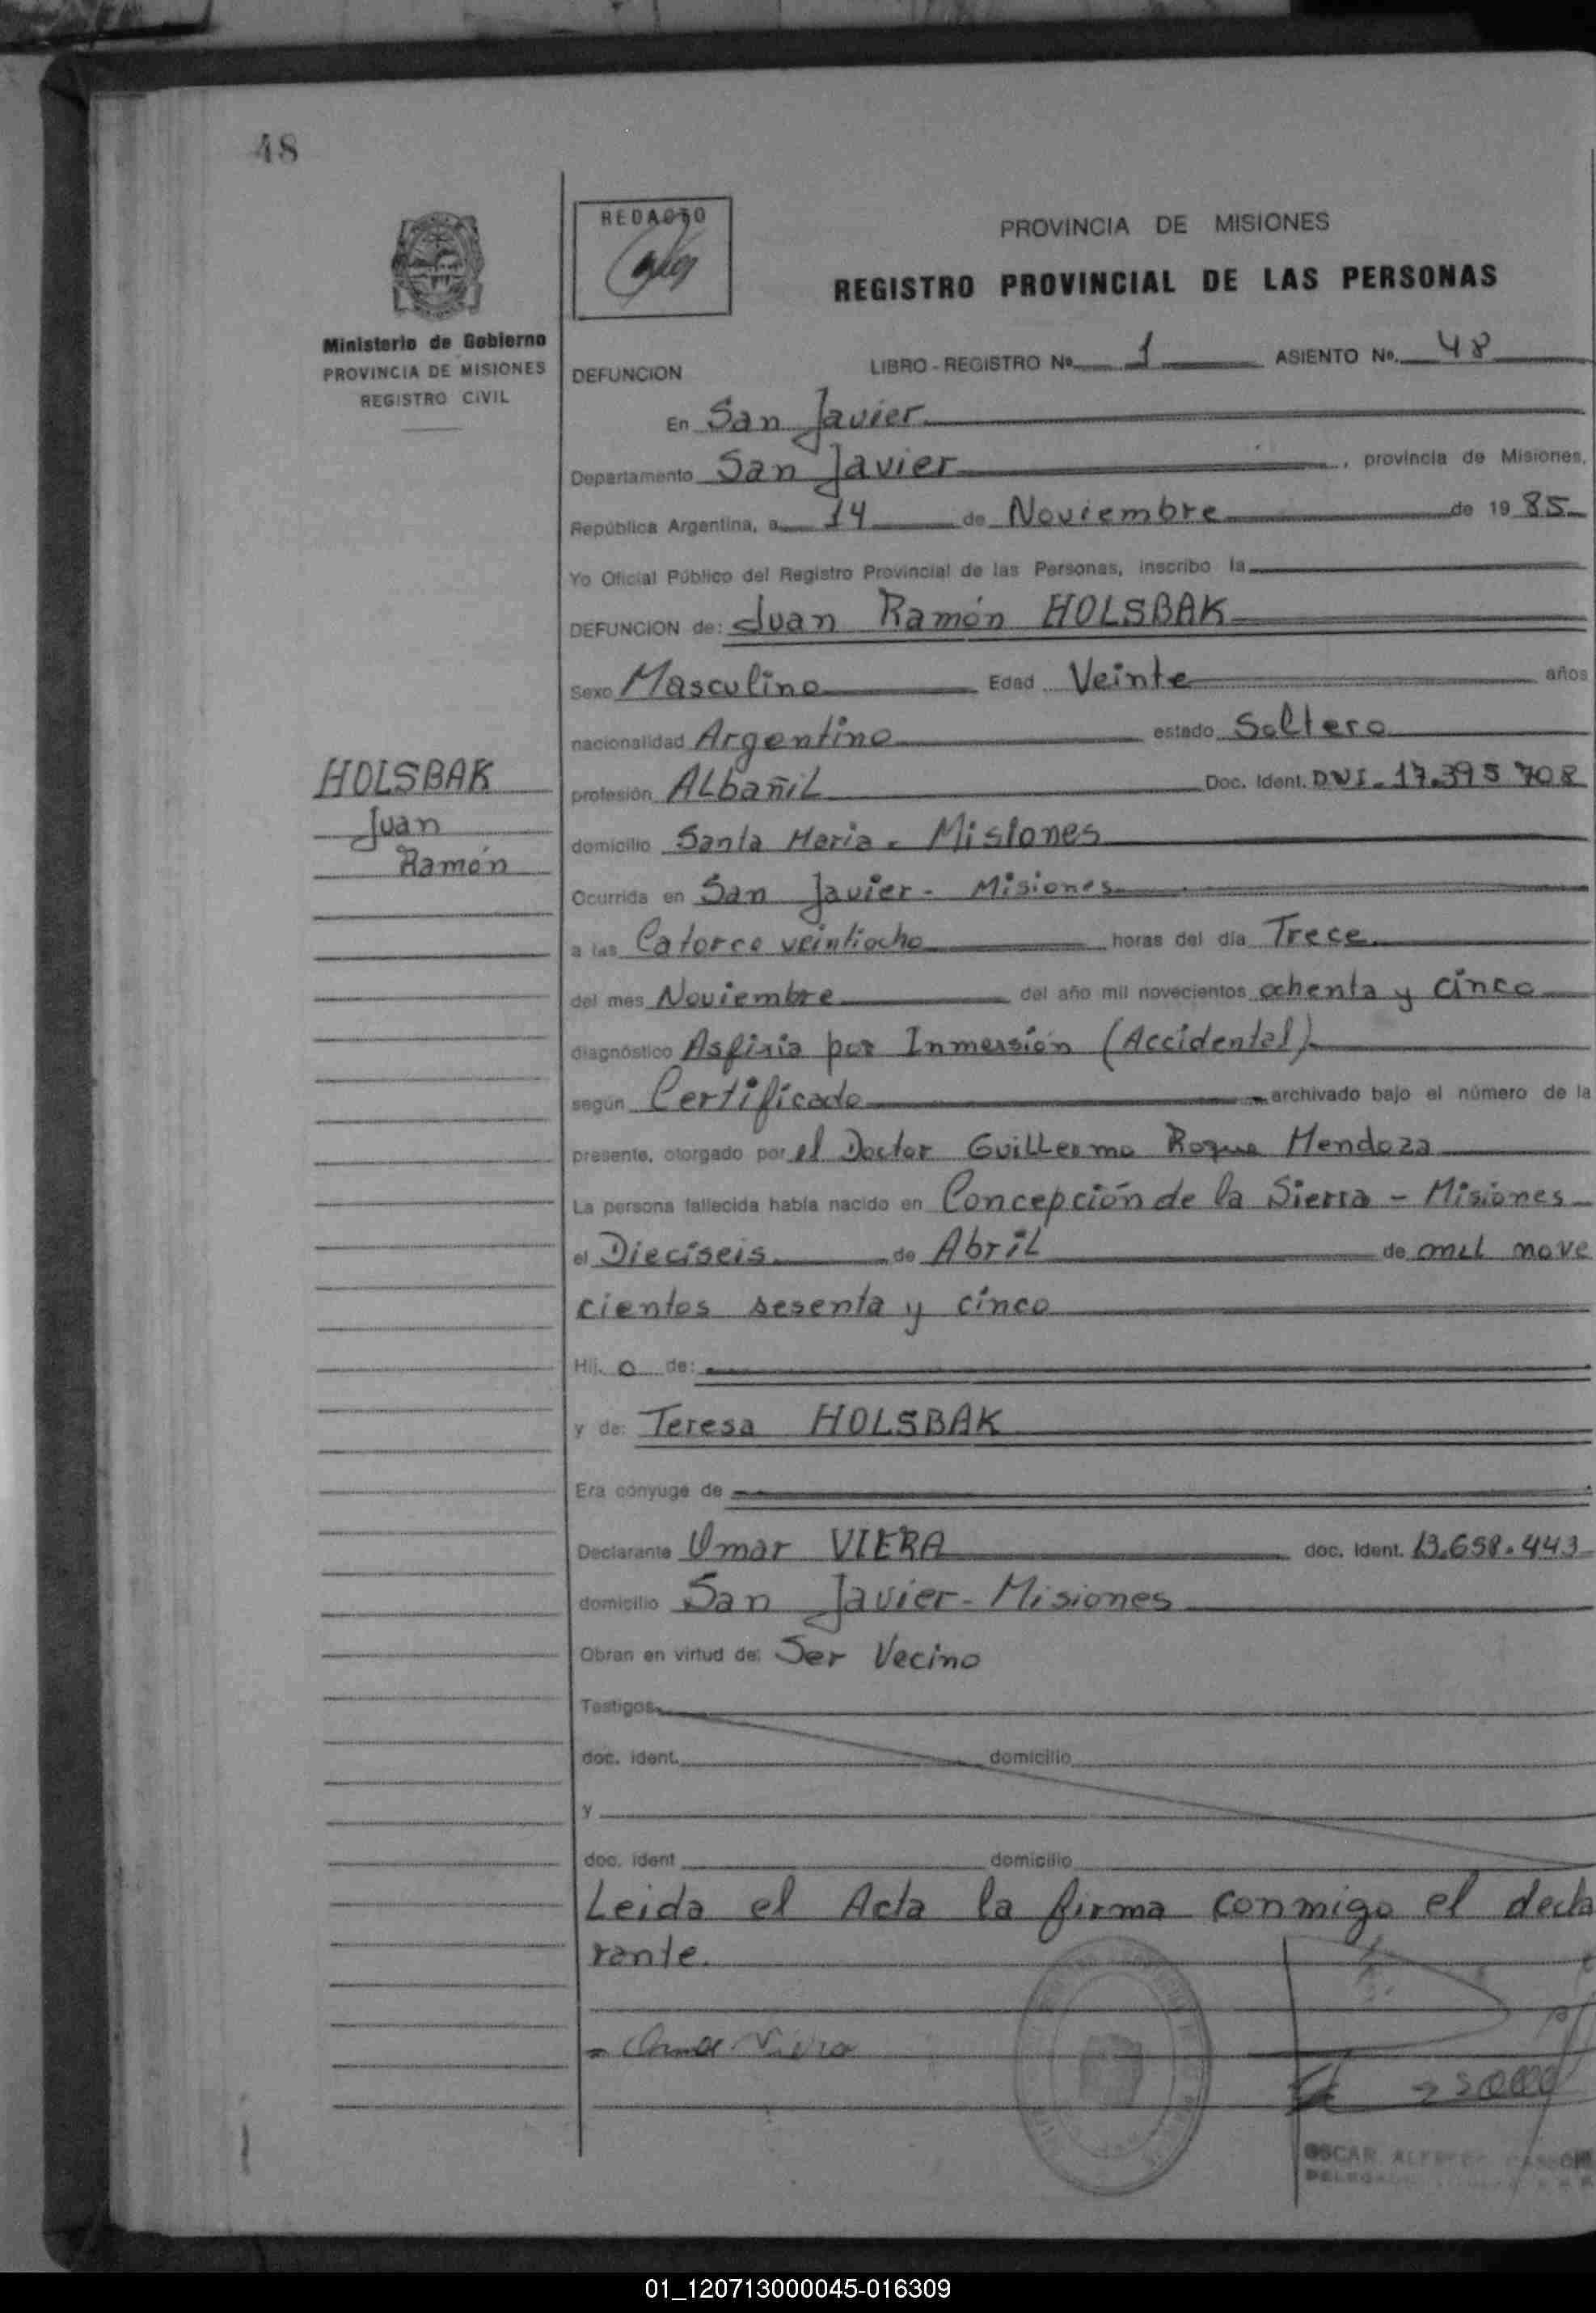 48
REDACTO
PROVINCIA DE MISIONES
REGISTRO PROVINCIAL DE LAS PERSONAS
Ministerio de Gobierno
PROVINCIA DE MISIONES
REGISTRO CIVIL
DEFUNCION LIBRO - REGISTRO Nº 1 ASIENTO Nº 48
En San Javier
Departamento San Javier, provincia de Misiones,
República Argentina, a 14 de Noviembre de 1985
Yo Oficial Público del Registro Provincial de las Personas, inscribo la
DEFUNCION de: Juan Ramón HOLSBAK
Sexo Masculino Edad Veinte años
nacionalidad Argentino estado Soltero
HOLSBAK
Juan
Ramón
profesión ALbañiL Doc. Ident. DNI. 17.395 708
domicilio Santa Maria - Misiones
Ocurrida en San Javier - Misiones
a las Catorce veintiocho horas del día Trece
del mes Noviembre del año mil novecientos ochenta y cinco
diagnóstico Asfixia por Inmersión (Accidental)
según Certificado archivado bajo el número de la
presente, otorgado por el Doctor GuiLLermo Roque Mendoza
La persona fallecida había nacido en Concepción de la Sierra - Misiones
el Dieciseis de Abril de mil nove
cientos sesenta y cinco
Hij o de:
y de: Teresa HOLSBAK
Era cónyuge de
Declarante Omar VIERA doc. Ident. 13.658.443
domicilio San Javier - Misiones
Obran en virtud de: Ser Vecino
Testigos
doc. ident. domicilio
y
doc. ident domicilio
Leida el Acta la firma conmigo el decla
rante.
Viera
OSCAR
01_120713000045-016309